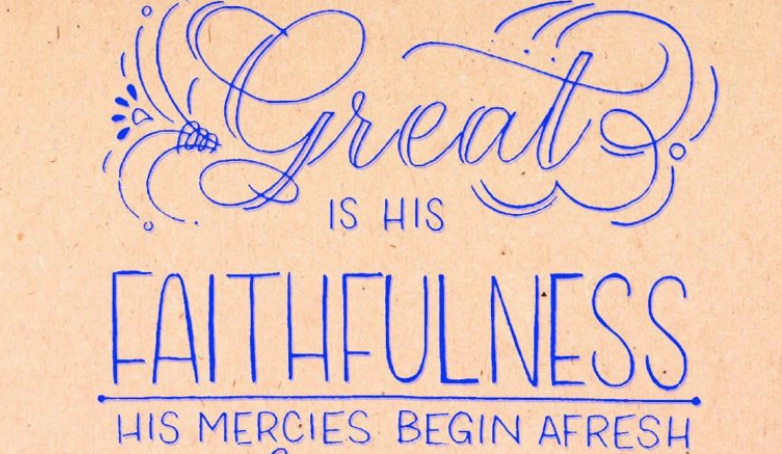 Great
IS HIS
FAITHFULNESS
HIS MERCIES BEGIN AFRESH